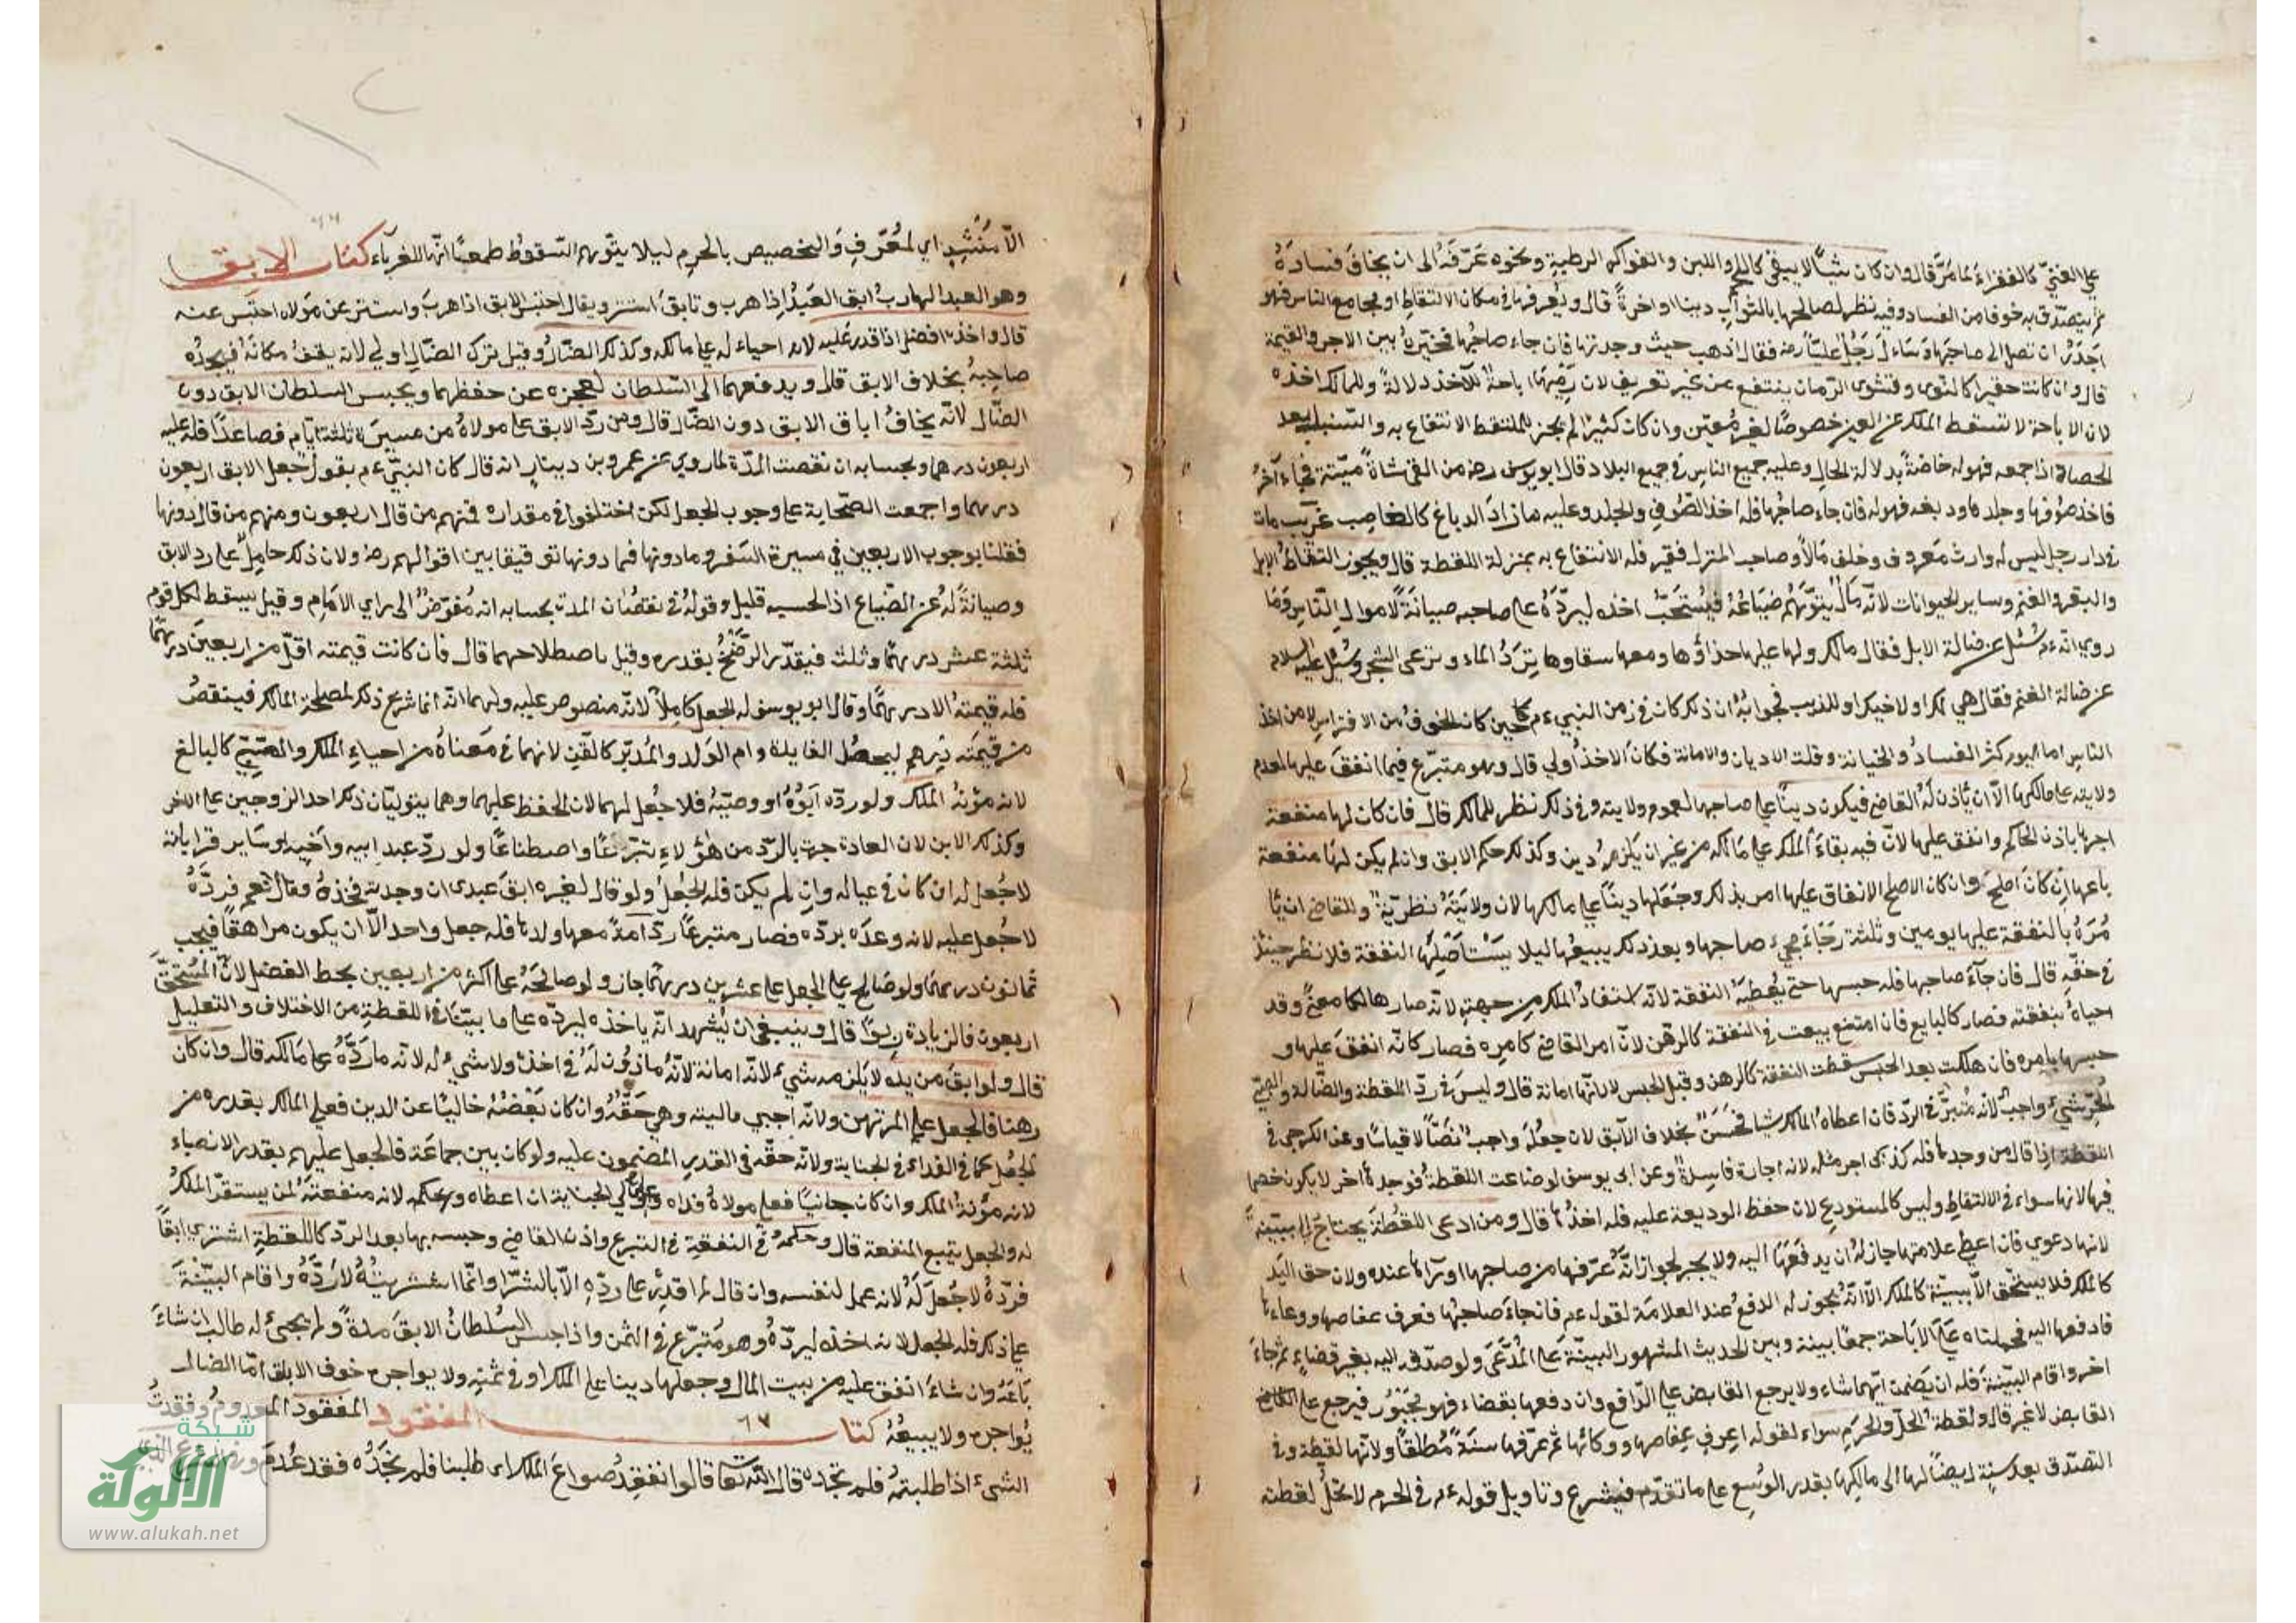 علي الغنيّ كالفقراء لما مرّ قال وان كان شيأ لا يبقي كاللحم واللبن والفواكه الرطبة ونحوه عَرّفه الى ان يخاف فساده
ثم يتصدّق به خوفا من الفساد وفيه نظر لصاحبها بالثواب دينا او اخرة قال ويُعرفها في مكان الالتقاط او مجامع الناس فهو
اجدر ان تصل الى صاحبها وساء ل رجل عليّا رضه فقال اذهب حيث وجدتها فان جاء صاحبها فخيّره بين الاجر والقيمة
قال وان كانت حقيرا كالنوى وقشوى الرمان ينتفع من غير تعريف لان رميها اباحة للآخذ دلالة وللمالك اخذه
لان الاباحة لا تسقط الملك عن العين خصوصًا لغير مُعيّن وان كان كثيرا لم يجز للملتقط الانتفاع به والسّنبل بعد
الحصاد اذا جمعه فهو له خاصّة بدلالة الحال وعليه جميع الناس في جميع البلاد قال ابو يوسف رضه من القى شاة ميّتة فجاء آخر
فاخذ صُوفها وجلدها ودبغه فهو له فان جاء صاحبها فله اخذ الصّوف والجلد وعليه ما زاد الدباغ كالغاصب غريب مات
في دار رجل ليس له وارث معروف وخلف مالاً وصاحب المنزل فقير فله الانتفاع به بمنزلة اللقطة قال ويجوز التقاط الابل
والبقر والغنم وساير الحيوانات لانّه مال يتوهّم ضياعُهُ فيُستحَبّ اخذه ليردّه على صاحبه صيانة لاموال النّاس وما
روي انّه عم سُئل عن ضالة الابل فقال مالك ولها عليها حذاؤها ومعها سقاوها تَرِدُ الماء وترعى الشجر وسُئل عليه السلام
عن ضالة الغنم فقال هي لك او لاخيك او للذيب فجوابُهُ ان ذلك كان في زمن النبي عم حين كان الخوف من الافتراس لا من اخذ
الناس اما اليوم كثر الفساد والخيانة وقلت الاديان والامانة فكان الاخذ اولي قال وهو متبرّع فيما انفق عليها لعدم
ولايته على مالكها الاّ ان يأذن له القاضي فيكون دينا على صاحبها لعموم ولايته وفي ذلك نظر للمالك قال فان كان لها منفعة
اجرها باذن الحاكم وانفق عليها لانّ فيه بقاء الملك على مالكه من غير ان يلزمه دين وكذلك حكم الابق وان لم يكن لها منفعة
باعها ان كان اصلح وان كان الاصلح الانفاق عليها امر بذلك وجعلها دينا على مالكها لان ولايته نظريّة وللقاضي ان يأ
مره بالنفقة عليها يومين وثلثة رجاء مجيء صاحبها وبعد ذلك يبيعها ليلا يستأصلها النفقة فلا نظر حينئذ
في حقّه قال فان جاء صاحبها فله حبسها حتى يُعطيه النفقة لانّه استفاد الملك من جهته لانّه صار هالكا معنى وقد
احياه بنفقته فصار كالبايع فان امتنع بيعت في النفقة كالرهن لانّ امر القاضي كامره فصار كانّه انفق عليها و
حبسها بامره فان هلكت بعد الحبس سقطت النفقة كالرهن وقبل الحبس لا لانّها امانة قال وليس في ردّ اللقطة والضّالة والصبيّ
الحُرّ شيء واجب لانه متبرّع في الردّ فان اعطاه المالك شيا فحَسَنٌ بخلاف الآبق لان جُعله واجب نصّاً لا قياسا وعن الكرخي في
اللقطة اذا قال من وجدها فله كذا فله اجر مثله لانه اجارة فاسدة وعن ابى يوسف لو ضاعت اللقطة فوجدها اخر لا يكون خصما
فيها لانها سواء في الالتقاط وليس كالمستودع لان حفظ الوديعة عليه فله اخذها قال ومن ادعى اللقطة يحتاج الى بيّنة
لانها دعوى فان اعطى علامتها جاز له ان يدفعها اليه ولا يجبر لجواز انّه عرّفها من صاحبها او رآها عنده ولان حق اليد
كالملك فلا يستحق الاّ ببيّنة كالملك الاّ انّه يجوز له الدفع عند العلامة لقوله عم فان جاء صاحبها فعرف عفاصها ووعاءها
فادفعها اليه فحملناه على الاباحة جمعًا بينه وبين الحديث المشهور البيّنة على المُدّعي ولو صدّقه اليه بغير قضاء ثم جاء
اخر واقام البيّنة فله ان يضمن ايّهما شاء ولا يرجع القابض على الدّافع وان دفعها بقضاء فهو مجبور فيرجع على القابض
القابض لا غير قال ولقطة الحلّ والحرم سواء لقوله اعرف عِفاصها ووكائها ثم عرّفها سنةً مُطلقًا ولانّها لقطة وفي
التصدّق بعد سنة ايضاً لها الى مالكها بقدر الوُسع على ما تقدّم فيشرع وتاويل قوله عم في الحرم لا تحلّ لقطته
الاّ مُنشدٍ اي لمُعرّف والتخصيص بالحرم ليلا يتوهم السّقوط طمعًا انّها للغرباء كتاب الابق
وهو العبد الهارب ابق العبد اذا هرب وتابق استتر ويقال احتبس الابق اذا هرب واستتر عن مولاه احتبس عنه
قال واخذه افضل اذا قدر عليه لانه احياء له على مالكه وكذلك الضالّ وقيل ترك الضّال اولي لانه يقف مكانه فيجده
صاحبه بخلاف الابق قال ويدفعهما الى السّلطان لعجزه عن حفظهما ويحبس السلطان الابق دون
الضّال لانّه يخاف اباق الابق دون الضال قال ومن ردّ الابق على مولاه من مسيرة ثلثة ايّام فصاعدًا فله عليه
اربعون درهما وبحسابه ان نقصت المدّة لما روي عن عمرو بن دينار انه قال كان النبيّ عم يقول جعل الابق اربعون
درهما واجمعت الصّحابة على وجوب الجعل لكن اختلفوا في مقداره فمنهم من قال اربعون ومنهم من قال دونها
فقلنا بوجوب الاربعين في مسيرة السّفر وما دونها فما دونها توفيقا بين اقوالهم رضه ولان ذلك حامل على رد الابق
وصيانةً لهُ عن الضّياع اذ الحسبه قليل وقوله في نقصان المدة بحسابه انه مُفوّضٌ الى راي الامام وقيل يسقط لكل قوم
ثلثة عشر درهمًا وثلث فيقدّر الرّضخ بقدره وقيل باصطلاحهما قال فان كانت قيمته اقلّ من اربعين درهمًا
فله قيمته الا درهمًا وقال ابو يوسف له الجعل كاملاً لانّه منصوص عليه ولهما انّه انما شرع ذلك لمصلحة المالك فينقص
من قيمته درهم ليحصل الفايدة وام الولد والمُدبّر كالقنّ لانهما في معناه من احياء الملك والصّبيّ كالبالغ
لانه مؤنة الملك ولو ردّه ابوه او وصيّهُ فلا جُعل لهما لان الحفظ عليهما وهما يتوليان ذلك احد الزوجين على الاخر
وكذلك الابن لان العادة جرت بالردّ من هؤلاء تبرّعًا واصطناعًا ولو ردّ عبد ابيه واخيه او ساير قراباته
لا جُعل له ان كان في عياله وان لم يكن فله الجُعل ولو قال لغيره ابق عبدى ان وجدته فخذه وقال نعم فردّه
لا جُعل عليه لانه وعده بردّه فصار متبرعًا ردّ امةً معها ولدها فله جعل واحد الاّ ان يكون مراهقًا فيجب
ثمانون درهمًا ولو صالح على الجعل على عشرين درهمًا جاز ولو صالحه على اكثر من اربعين بحط الفضل لانّ المُستحقّ
اربعون فالزيادة ربواً قال وينبغي ان يُشهد انّه ياخذه ليردّه على ما بيّنا في اللقطة من الاختلاف والتعليل
قال ولو ابق من يده لا يلزمه شيء لانّه امانة لانّهُ ماذون لهُ في اخذه ولا شيء له لانّه ما ردّهُ على مالكه قال وان كان
رهنا فالجعل على المرتهن ولانّه احيي ماليته وهي حقّهُ وان كان بَعْضُهُ خاليًا عن الدين فعلى المالك بقدره من
الجُعل كما في الفداء في الجناية ولانّه حقّه في القدر المضمون عليه ولو كان بين جماعة فالجعل عليهم بقدر الانصباء
لانه مؤنة الملك وان كان جانيًا فعلى مولاه فداه وعلى ولي الجناية ان اعطاه وبحكمه لانه منفعتهُ لمن يستقرّ الملك
له والجعل يتبع المنفعة قال وحكمه في النفقة في التبرع واذن القاضي وحبسه بها بعد الردّ كاللقطة اشترى ابقًا
فردّه لا جُعل لهُ لانه عمل لنفسه وان قال لم اقدر على ردّه الاّ بالشّرا وانّما اشتريتُهُ لاردّه واقام البيّنة
على ذلك فله الجعل لانه اخذه ليردّه وهو متبرّع في الثمن واذا حبس السُلطان الابق مدةً ولم يجيء له طالب ان شاء
باعه وان شاء انفق عليه من بيت المال وجعلها دينا على الملك او في ثمنه ولا يواجره خوف الابق امّا الضال
يُواجره ولا يبيعُهُ كتاب المفقود المفقود المعدوم وفقدتُ
الشىء اذا طلبتهُ فلم تجده قال اللّه تعا قالوا نفقد صواع الملك اى طلبنا فلم نجده فقد عُدم
شبكة
الألوكة
www.alukah.net